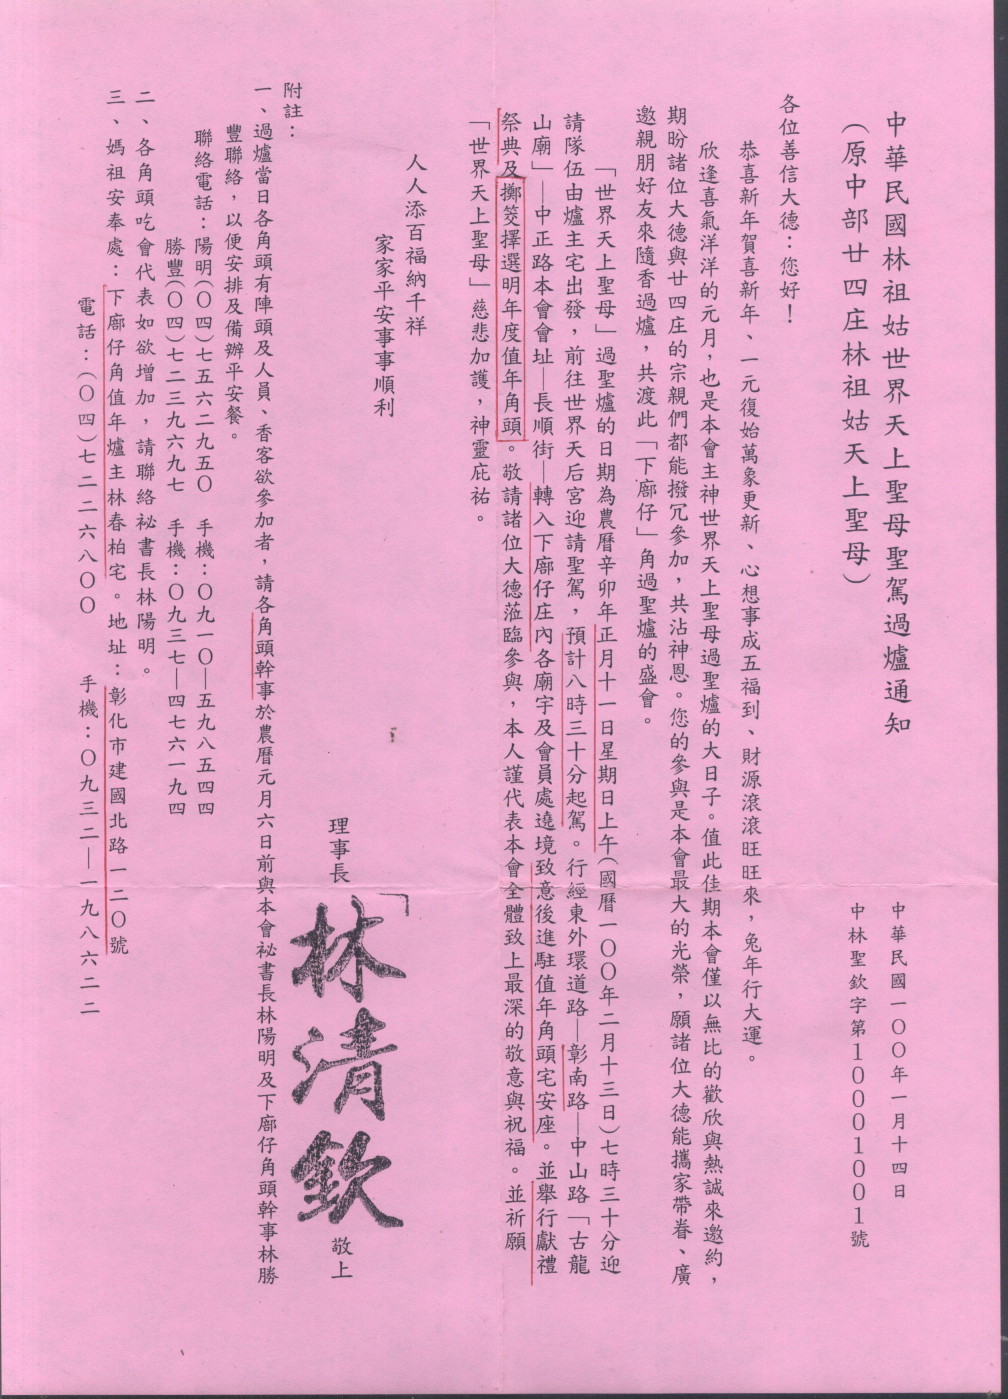 中華民國林祖姑世界天上聖母聖駕過爐通知
中華民國一〇〇年一月十四日
(原中部廿四庄林祖姑天上聖母)
中林聖欽字第10001001號
各位善信大德：您好！
恭喜新年賀喜新年、一元復始萬象更新、心想事成五福到、財源滾滾旺旺來，兔年行大運。
欣逢喜氣洋洋的元月，也是本會主神世界天上聖母過聖爐的大日子。值此佳期本會僅以無比的歡欣與熱誠來邀約，
期盼諸位大德與廿四庄的宗親們都能撥冗參加，共沾神恩。您的參與是本會最大的光榮，願諸位大德能攜家帶眷、廣
邀親朋好友來隨香過爐，共渡此「下廍仔」角過聖爐的盛會。
「世界天上聖母」過聖爐的日期為農曆辛卯年正月十一日星期日上午(國曆一〇〇年二月十三日)七時三十分迎
請隊伍由爐主宅出發，前往世界天后宮迎請聖駕，預計八時三十分起駕。行經東外環道路—彰南路—中山路「古龍
山廟」—中正路本會會址—長順街—轉入下廍仔庄內各廟宇及會員處遶境致意後進駐值年角頭宅安座。並舉行獻禮
祭典及擲筊擇選明年度值年角頭。敬請諸位大德蒞臨參與，本人謹代表本會全體致上最深的敬意與祝福。並祈願
「世界天上聖母」慈悲加護，神靈庇祐。
人人添百福納千祥
家家平安事事順利
理事長 林清欽 敬上
附註：
一、過爐當日各角頭有陣頭及人員、香客欲參加者，請各角頭幹事於農曆元月六日前與本會祕書長林陽明及下廍仔角頭幹事林勝
豐聯絡，以便安排及備辦平安餐。
聯絡電話：陽明(〇四)七五六二九五〇 手機：〇九一〇—五九八五四四
勝豐(〇四)七二三九六九七 手機：〇九三七—四七六一九四
二、各角頭吃會代表如欲增加，請聯絡祕書長林陽明。
三、媽祖安奉處：下廍仔角值年爐主林春柏宅。地址：彰化市建國北路一二〇號
電話：(〇四)七二二六八〇〇 手機：〇九三二—一九八六二二